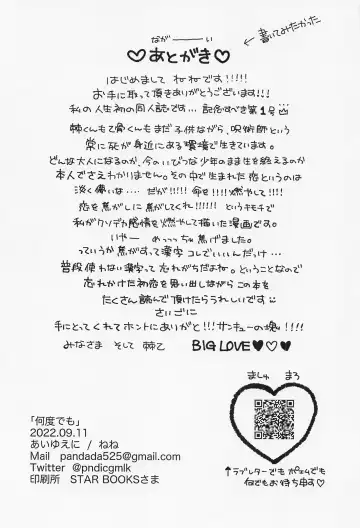 なが――い
♡あとがき♡
←書いてみたかった
はじめまして ねねです!!!!!
お手に取って頂きありがとうございます!!!
私の人生初の同人誌です…記念すべき第1号
棘くんも憂くんもまだ子供ながら、呪術師という
常に死が身近にある環境で生きています。
どんな大人になるのか、今のいびつな少年のまま生を終えるのか
本人でさえわかりません。その中で生まれた恋というのは
淡く儚いは…だが!!!!命を!!!!燃やして!!!!
恋を焦がしに焦がしてくれ!!!!!! というキモチで
私がクソデカ感情を燃やして描いた漫画です。
いやー めっっっちゃ焦げました。
っていうか焦がすって漢字コレでいいんだけ…
普段使わない漢字って忘れがちだよね。ということなので
忘れかけた初恋を思い出しながらこの本を
たくさん読んで頂けたらうれしいです
さいごに
手にとってくれてホントにありがと!!!サンキューの魂!!!!
みなさま そして 棘乙 BIG LOVE♥♡♥
ましゅ まろ
「何度でも」
2022.09.11
あいゆえに / ねね
Mail pandada525@gmail.com
Twitter @pndicgmlk
印刷所 STAR BOOKSさま
↑ラブレターでもポエムでも
何でもお待ち申す♡